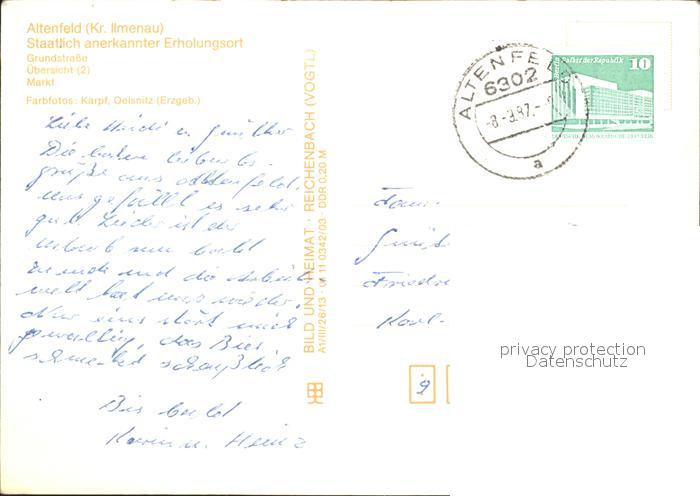 Altenfeld (Kr. Ilmenau)
Staatlich anerkannter Erholungsort
Grundstraße
Übersicht (2)
Markt
Farbfotos: Karpf, Oelsnitz (Erzgeb.)
Liebe Heidi u. Günther
Die besten Urlaubs-
grüße aus Altenfeld.
Uns gefällt es sehr
gut. Leider ist der
Urlaub nun bald
zu ende und die Arbeits
welt hat uns wieder.
Nur eins stört mich
gewaltig, das Bier
schmeckt scheußlich
Bis bald
Karin u. Heinz
BILD UND HEIMAT · REICHENBACH (VOGTL)
A1/III/26/13 01 11 0342/03 DDR 0,20 M
ALTENFELD
6302
-8.-9.87.-
a
Berlin, Palast der Republik
10
DEUTSCHE DEMOKRATISCHE REPUBLIK
Fam.
Günt
Friedr
Karl-
9
privacy protection
Datenschutz